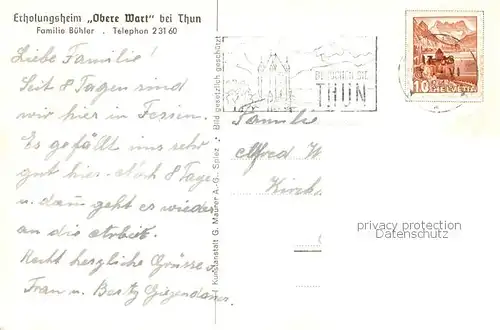 Erholungsheim „Obere Wart" bei Thun
Familie Bühler . Telephon 2 31 60
Liebe Familie!
Seit 8 Tagen sind
wir hier in Ferien.
Es gefällt uns sehr
gut hier. Noch 8 Tage
u. dann geht es wieder
an die Arbeit.
Recht herzliche Grüsse
Frau u.
Kunstanstalt G. Maurer A.-G., Spiez • Bild gesetzlich geschützt
BESUCHEN SIE
THUN
10 HELVETIA
Familie
Alfred W
Kirch
privacy protection
Datenschutz